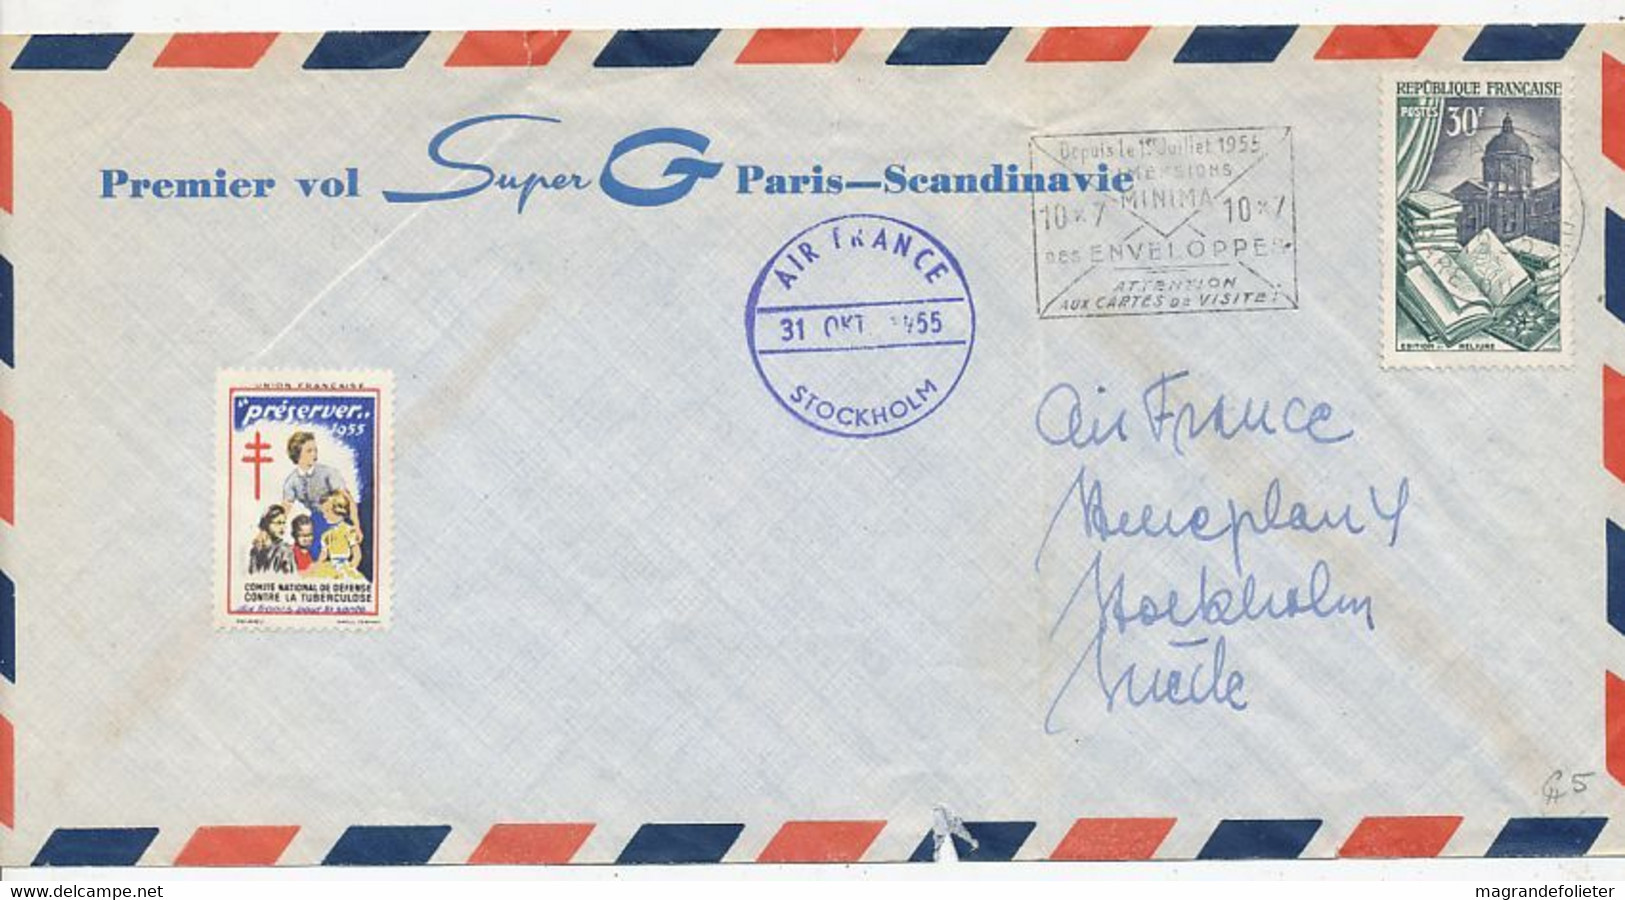 Premier vol Super G Paris—Scandinavie
Depuis le 1er Juillet 1955
DIMENSIONS
MINIMA
10 x 7 10 x 7
DES ENVELOPPES
ATTENTION
AUX CARTES DE VISITE !
RÉPUBLIQUE FRANÇAISE
POSTES 30F
EDITION ET RELIURE
AIR FRANCE
31 OKT 1955
STOCKHOLM
UNION FRANÇAISE
"préserver..
1955
COMITÉ NATIONAL DE DÉFENSE
CONTRE LA TUBERCULOSE
dix francs pour la santé
Air France
Stockholm
Suède
5
delcampe.net
magrandefolieter